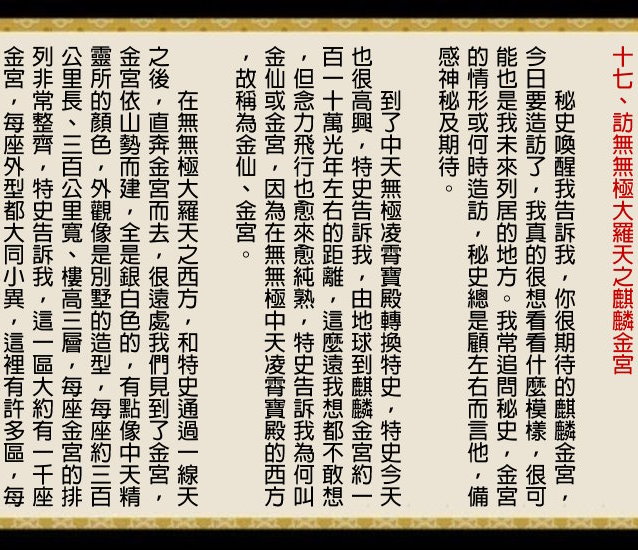 十七、訪無無極大羅天之麒麟金宮
秘史喚醒我告訴我，你很期待的麒麟金宮，
今日要造訪了，我真的很想看看什麼模樣，很可
能也是我未來列居的地方。我常追問秘史，金宮
的情形或何時造訪，秘史總是顧左右而言他，備
感神秘及期待。
到了中天無極凌霄寶殿轉換特史，特史今天
也很高興，特史告訴我，由地球到麒麟金宮約一
百一十萬光年左右的距離，這麼遠我想都不敢想
，但念力飛行也愈來愈純熟，特史告訴我為何叫
金仙或金宮，因為在無無極中天凌霄寶殿的西方
，故稱為金仙、金宮。
在無無極大羅天之西方，和特史通過一線天
之後，直奔金宮而去，很遠處我們見到了金宮，
金宮依山勢而建，全是銀白色的，有點像中天精
靈所的顏色，外觀像是別墅的造型，每座約三百
公里長、三百公里寬、樓高三層，每座金宮的排
列非常整齊，特史告訴我，這一區大約有一千座
金宮，每座外型都大同小異，這裡有許多區，每